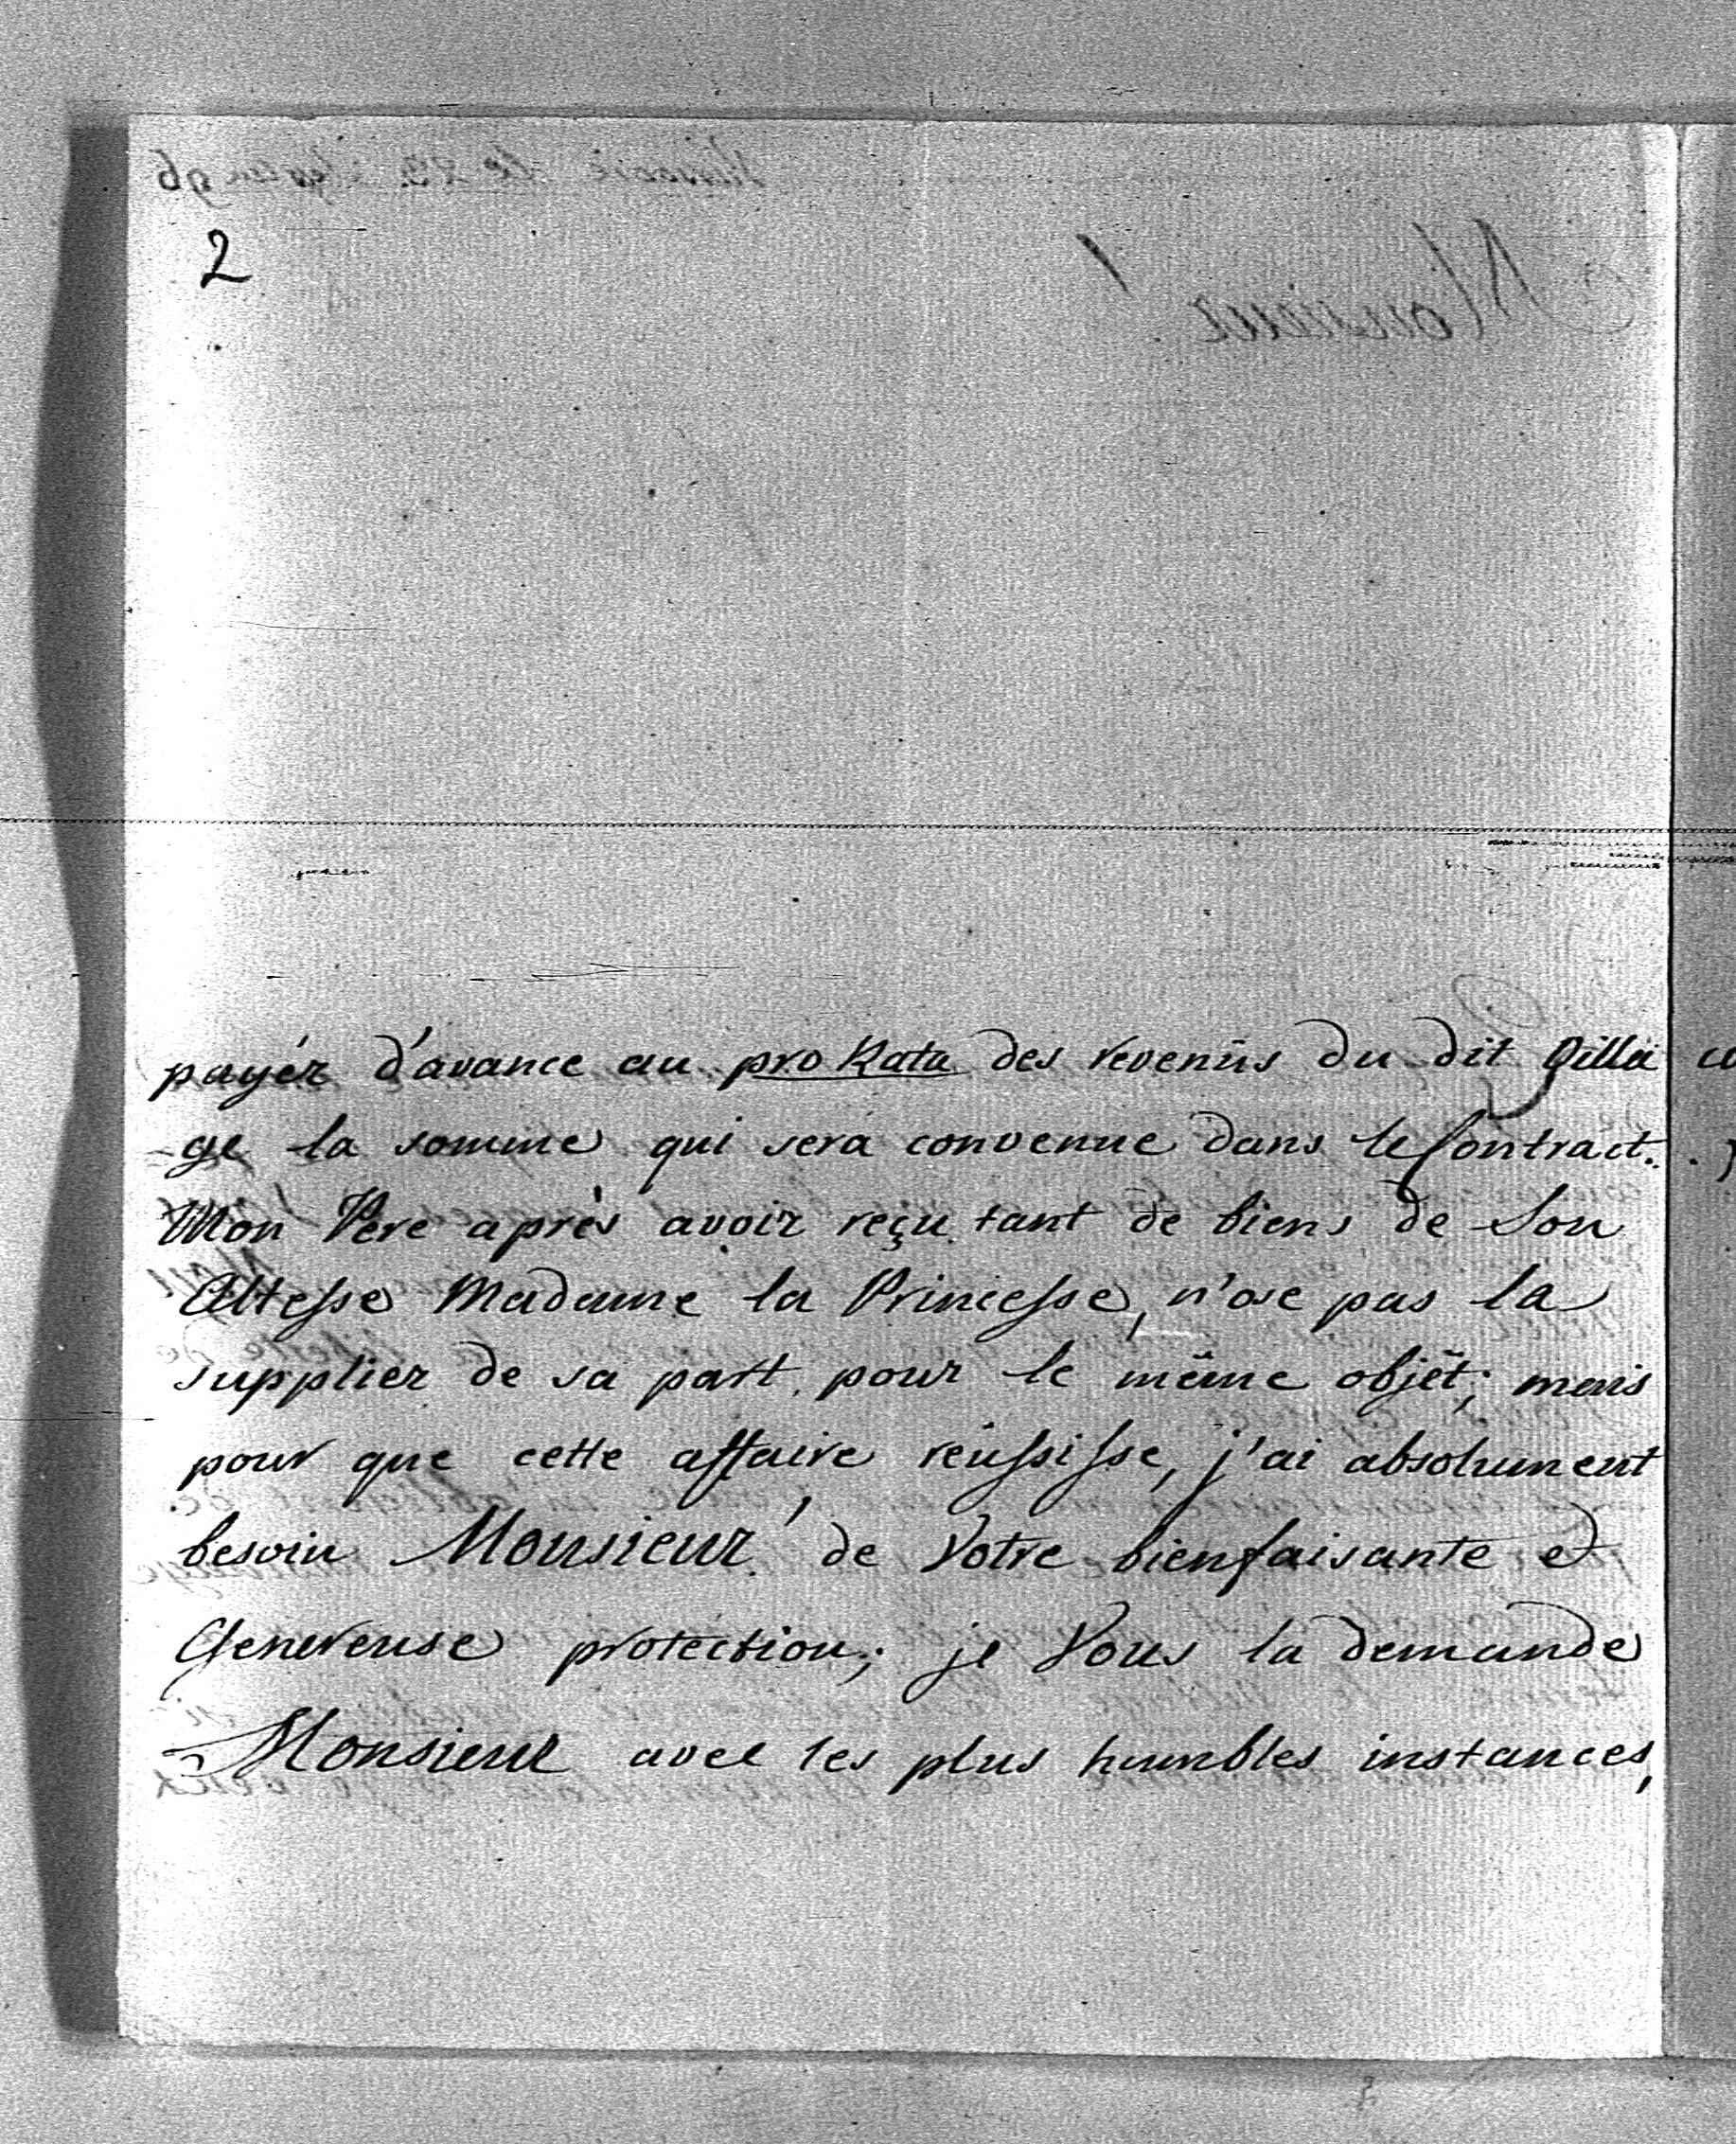 2
payér d'avance au pro Rata des revenûs du dit Villa
ge la somme qui sera convenue dans le Contract.
Mon Pere après avoir reçu tant de biens de Son
Altesse Madame la Princesse, n'ose pas la
supplier de sa part pour le même objêt; mais
pour que cette affaire réussisse, j'ai absolument
besoin Monsieur! de Votre bienfaisante et
Genereuse protection; je Vous la demande
Monsieur avec les plus humbles instances,